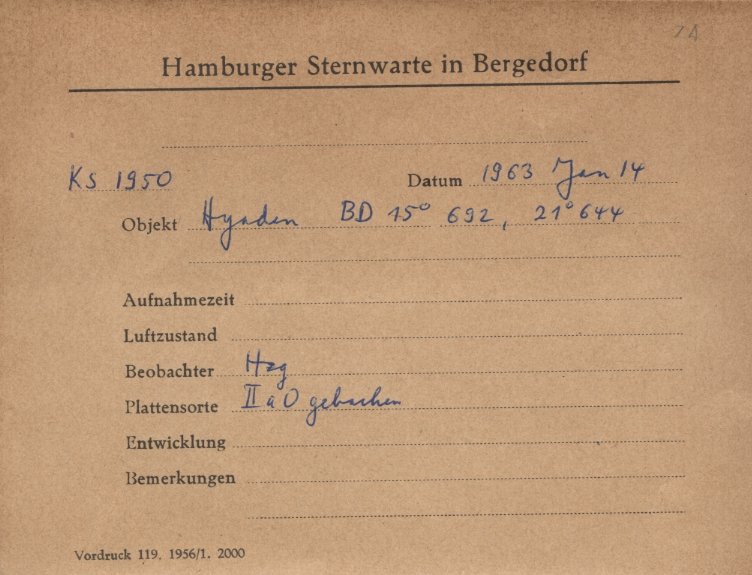 Hamburger Sternwarte in Bergedorf
KS 1950 Datum 1963 Jan 14
Objekt Hyaden BD 15° 692, 21° 644
Aufnahmezeit
Luftzustand
Beobachter Hzg
Plattensorte II a O gebacken
Entwicklung
Bemerkungen
Vordruck 119. 1956/1. 2000